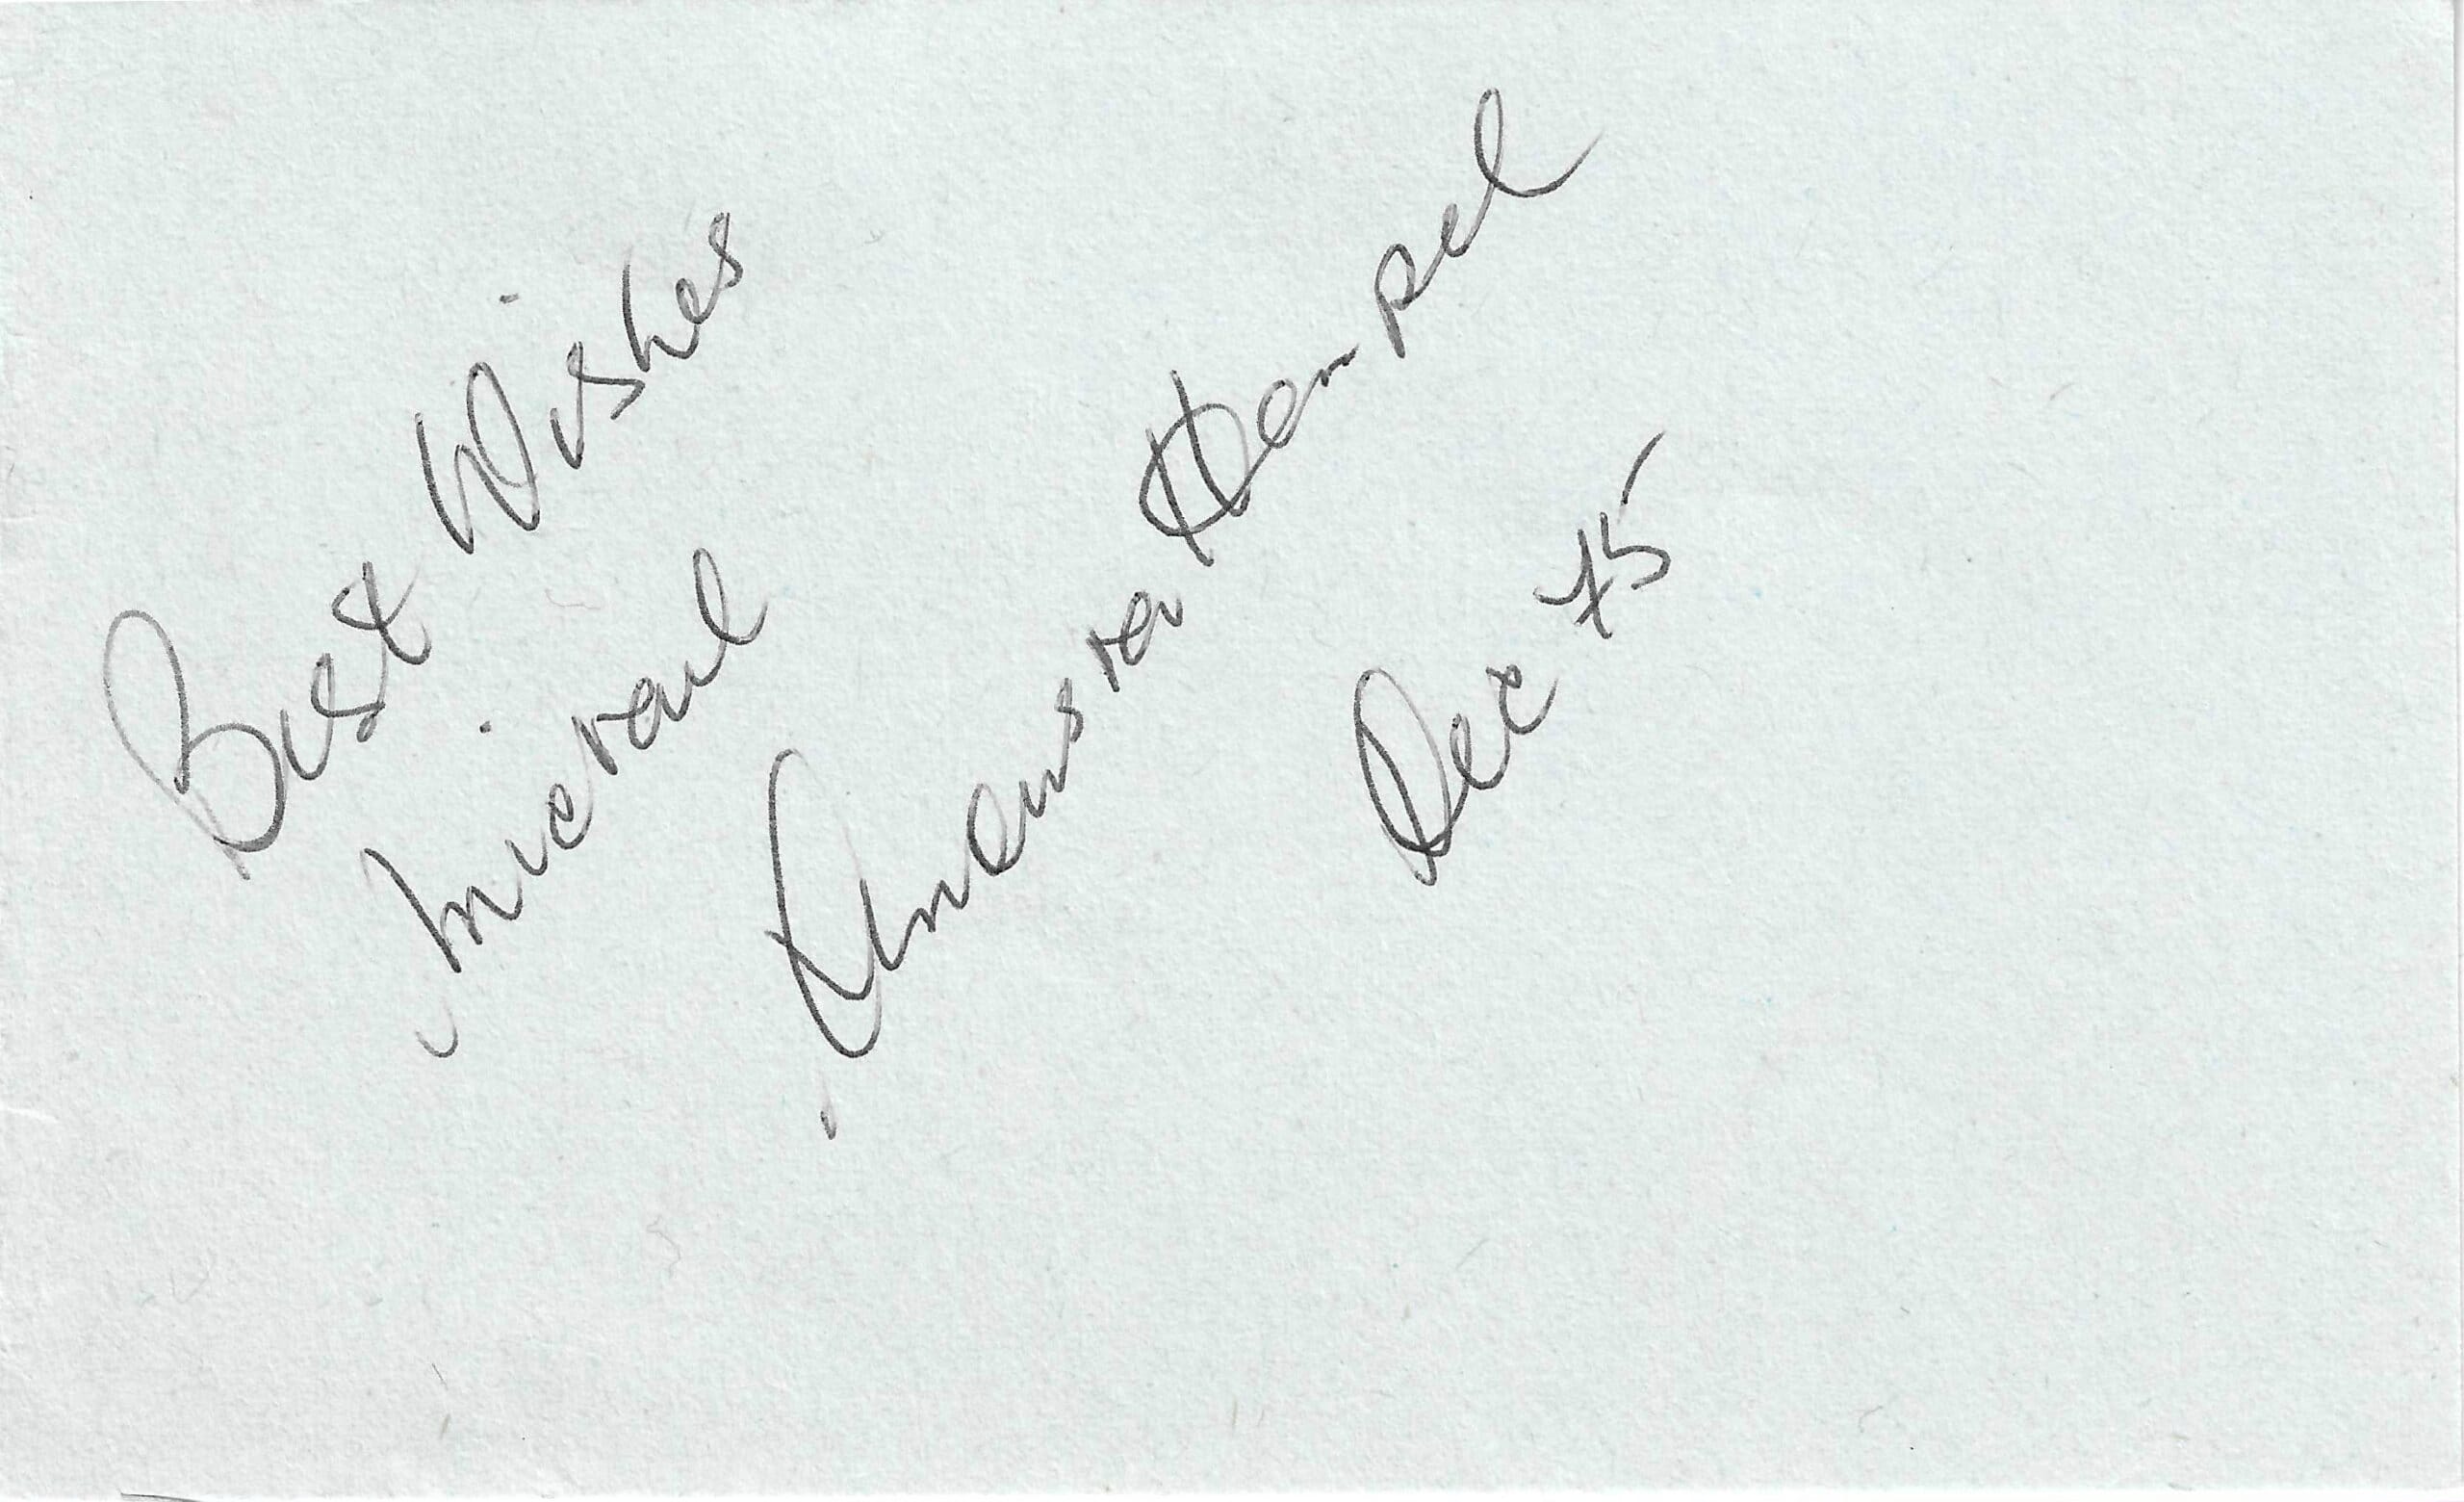 Best Wishes
Micrael
Anouska Hempel
Dec 75